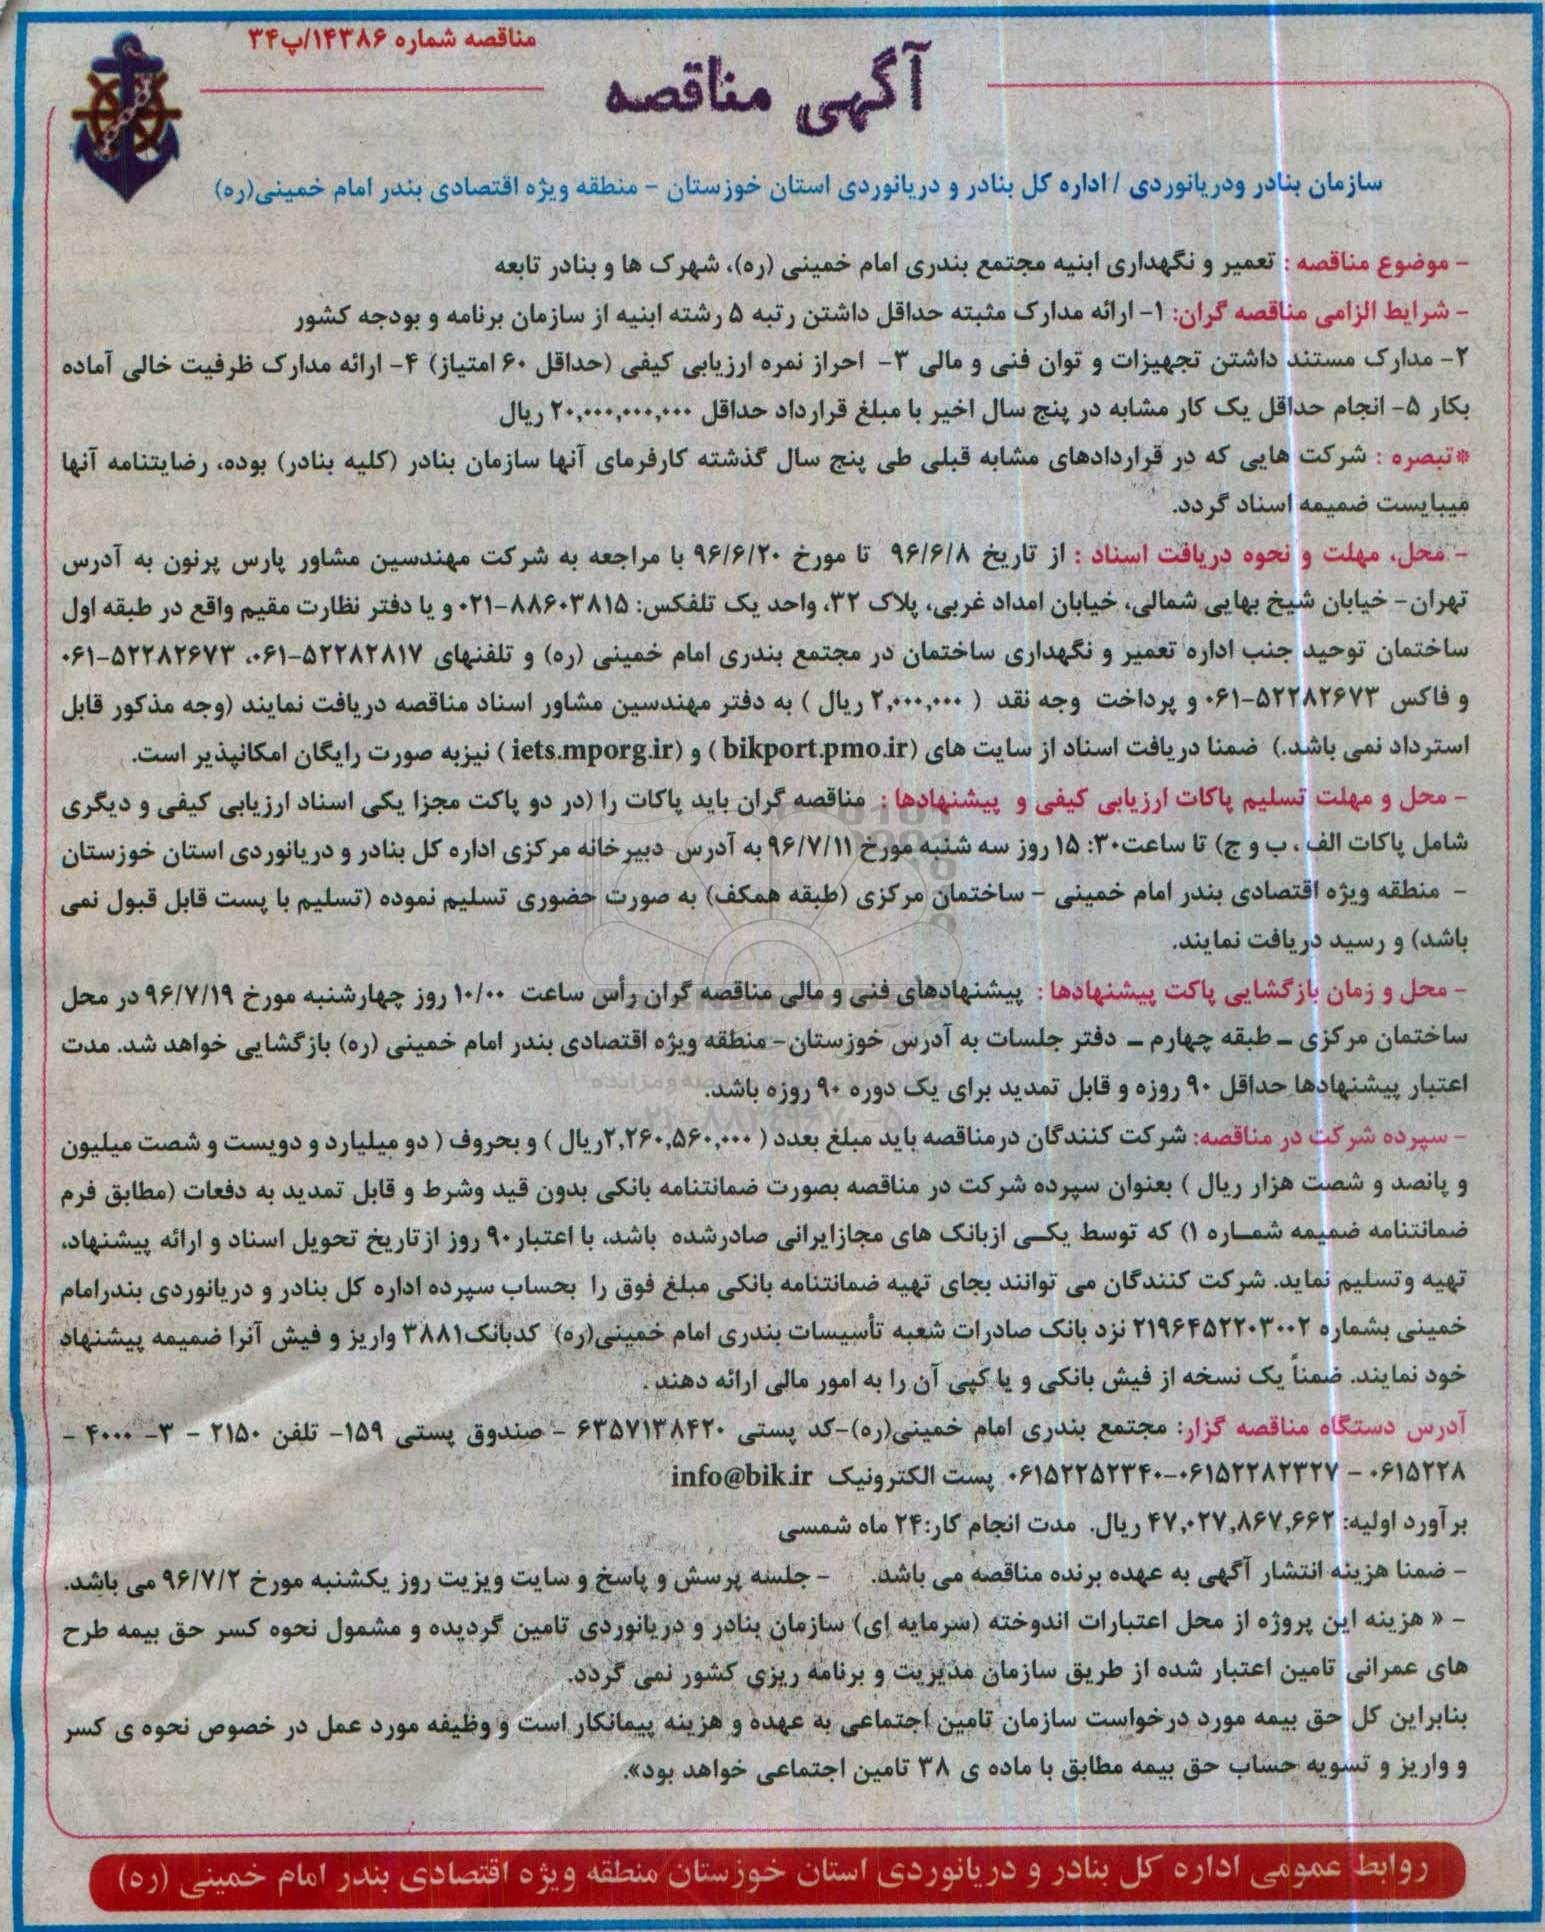 مناقصه شماره ۱۴۳۸۶/پ۳۴
آگهی مناقصه
سازمان بنادر ودریانوردی / اداره کل بنادر و دریانوردی استان خوزستان - منطقه ویژه اقتصادی بندر امام خمینی(ره)
- موضوع مناقصه : تعمیر و نگهداری ابنیه مجتمع بندری امام خمینی (ره)، شهرک ها و بنادر تابعه
- شرایط الزامی مناقصه گران: ۱- ارائه مدارک مثبته حداقل داشتن رتبه ۵ رشته ابنیه از سازمان برنامه و بودجه کشور
۲- مدارک مستند داشتن تجهیزات و توان فنی و مالی ۳- احراز نمره ارزیابی کیفی (حداقل ۶۰ امتیاز) ۴- ارائه مدارک ظرفیت خالی آماده
بکار ۵- انجام حداقل یک کار مشابه در پنج سال اخیر با مبلغ قرارداد حداقل ۲۰,۰۰۰,۰۰۰,۰۰۰ ریال
*تبصره : شرکت هایی که در قراردادهای مشابه قبلی طی پنج سال گذشته کارفرمای آنها سازمان بنادر (کلیه بنادر) بوده، رضایتنامه آنها
میبایست ضمیمه اسناد گردد.
- محل، مهلت و نحوه دریافت اسناد : از تاریخ ۹۶/۶/۸ تا مورخ ۹۶/۶/۲۰ با مراجعه به شرکت مهندسین مشاور پارس پرنون به آدرس
تهران- خیابان شیخ بهایی شمالی، خیابان امداد غربی، پلاک ۳۲، واحد یک تلفکس: ۸۸۶۰۳۸۱۵-۰۲۱ و یا دفتر نظارت مقیم واقع در طبقه اول
ساختمان توحید جنب اداره تعمیر و نگهداری ساختمان در مجتمع بندری امام خمینی (ره) و تلفنهای ۵۲۲۸۲۸۱۷-۰۶۱، ۵۲۲۸۲۶۷۳-۰۶۱
و فاکس ۵۲۲۸۲۶۷۳-۰۶۱ و پرداخت وجه نقد ( ۲,۰۰۰,۰۰۰ ریال ) به دفتر مهندسین مشاور اسناد مناقصه دریافت نمایند (وجه مذکور قابل
استرداد نمی باشد.) ضمنا دریافت اسناد از سایت های (bikport.pmo.ir) و (iets.mporg.ir) نیزبه صورت رایگان امکانپذیر است.
- محل و مهلت تسلیم پاکات ارزیابی کیفی و پیشنهادها : مناقصه گران باید پاکات را (در دو پاکت مجزا یکی اسناد ارزیابی کیفی و دیگری
شامل پاکات الف ، ب و ج) تا ساعت۳۰: ۱۵ روز سه شنبه مورخ ۹۶/۷/۱۱ به آدرس دبیرخانه مرکزی اداره کل بنادر و دریانوردی استان خوزستان
- منطقه ویژه اقتصادی بندر امام خمینی - ساختمان مرکزی (طبقه همکف) به صورت حضوری تسلیم نموده (تسلیم با پست قابل قبول نمی
باشد) و رسید دریافت نمایند.
- محل و زمان بازگشایی پاکت پیشنهادها : پیشنهادهای فنی و مالی مناقصه گران رأس ساعت ۱۰/۰۰ روز چهارشنبه مورخ ۹۶/۷/۱۹ در محل
ساختمان مرکزی – طبقه چهارم – دفتر جلسات به آدرس خوزستان- منطقه ویژه اقتصادی بندر امام خمینی (ره) بازگشایی خواهد شد. مدت
اعتبار پیشنهادها حداقل ۹۰ روزه و قابل تمدید برای یک دوره ۹۰ روزه باشد.
- سپرده شرکت در مناقصه: شرکت کنندگان درمناقصه باید مبلغ بعدد ( ۲,۲۶۰,۵۶۰,۰۰۰ریال ) و بحروف ( دو میلیارد و دویست و شصت میلیون
و پانصد و شصت هزار ریال ) بعنوان سپرده شرکت در مناقصه بصورت ضمانتنامه بانکی بدون قید وشرط و قابل تمدید به دفعات (مطابق فرم
ضمانتنامه ضمیمه شماره ۱) که توسط یکی ازبانک های مجازایرانی صادرشده باشد، با اعتبار۹۰ روز ازتاریخ تحویل اسناد و ارائه پیشنهاد،
تهیه وتسلیم نماید. شرکت کنندگان می توانند بجای تهیه ضمانتنامه بانکی مبلغ فوق را بحساب سپرده اداره کل بنادر و دریانوردی بندرامام
خمینی بشماره ۲۱۹۶۴۵۲۲۰۳۰۰۲ نزد بانک صادرات شعبه تأسیسات بندری امام خمینی(ره) کدبانک۳۸۸۱ واریز و فیش آنرا ضمیمه پیشنهاد
خود نمایند. ضمناً یک نسخه از فیش بانکی و یا کپی آن را به امور مالی ارائه دهند .
آدرس دستگاه مناقصه گزار: مجتمع بندری امام خمینی(ره)-کد پستی ۶۳۵۷۱۳۸۴۲۰ - صندوق پستی ۱۵۹- تلفن ۲۱۵۰ - ۳- ۴۰۰۰ -
۰۶۱۵۲۲۸ - ۰۶۱۵۲۲۸۲۳۲۷-۰۶۱۵۲۲۵۲۳۴۰ پست الکترونیک info@bik.ir
برآورد اولیه: ۴۷,۰۲۷,۸۶۷,۶۶۲ ریال. مدت انجام کار:۲۴ ماه شمسی
- ضمنا هزینه انتشار آگهی به عهده برنده مناقصه می باشد. - جلسه پرسش و پاسخ و سایت ویزیت روز یکشنبه مورخ ۹۶/۷/۲ می باشد.
- « هزینه این پروژه از محل اعتبارات اندوخته (سرمایه ای) سازمان بنادر و دریانوردی تامین گردیده و مشمول نحوه کسر حق بیمه طرح
های عمرانی تامین اعتبار شده از طریق سازمان مدیریت و برنامه ریزی کشور نمی گردد.
بنابراین کل حق بیمه مورد درخواست سازمان تامین اجتماعی به عهده و هزینه پیمانکار است و وظیفه مورد عمل در خصوص نحوه ی کسر
و واریز و تسویه حساب حق بیمه مطابق با ماده ی ۳۸ تامین اجتماعی خواهد بود».
روابط عمومی اداره کل بنادر و دریانوردی استان خوزستان منطقه ویژه اقتصادی بندر امام خمینی (ره)